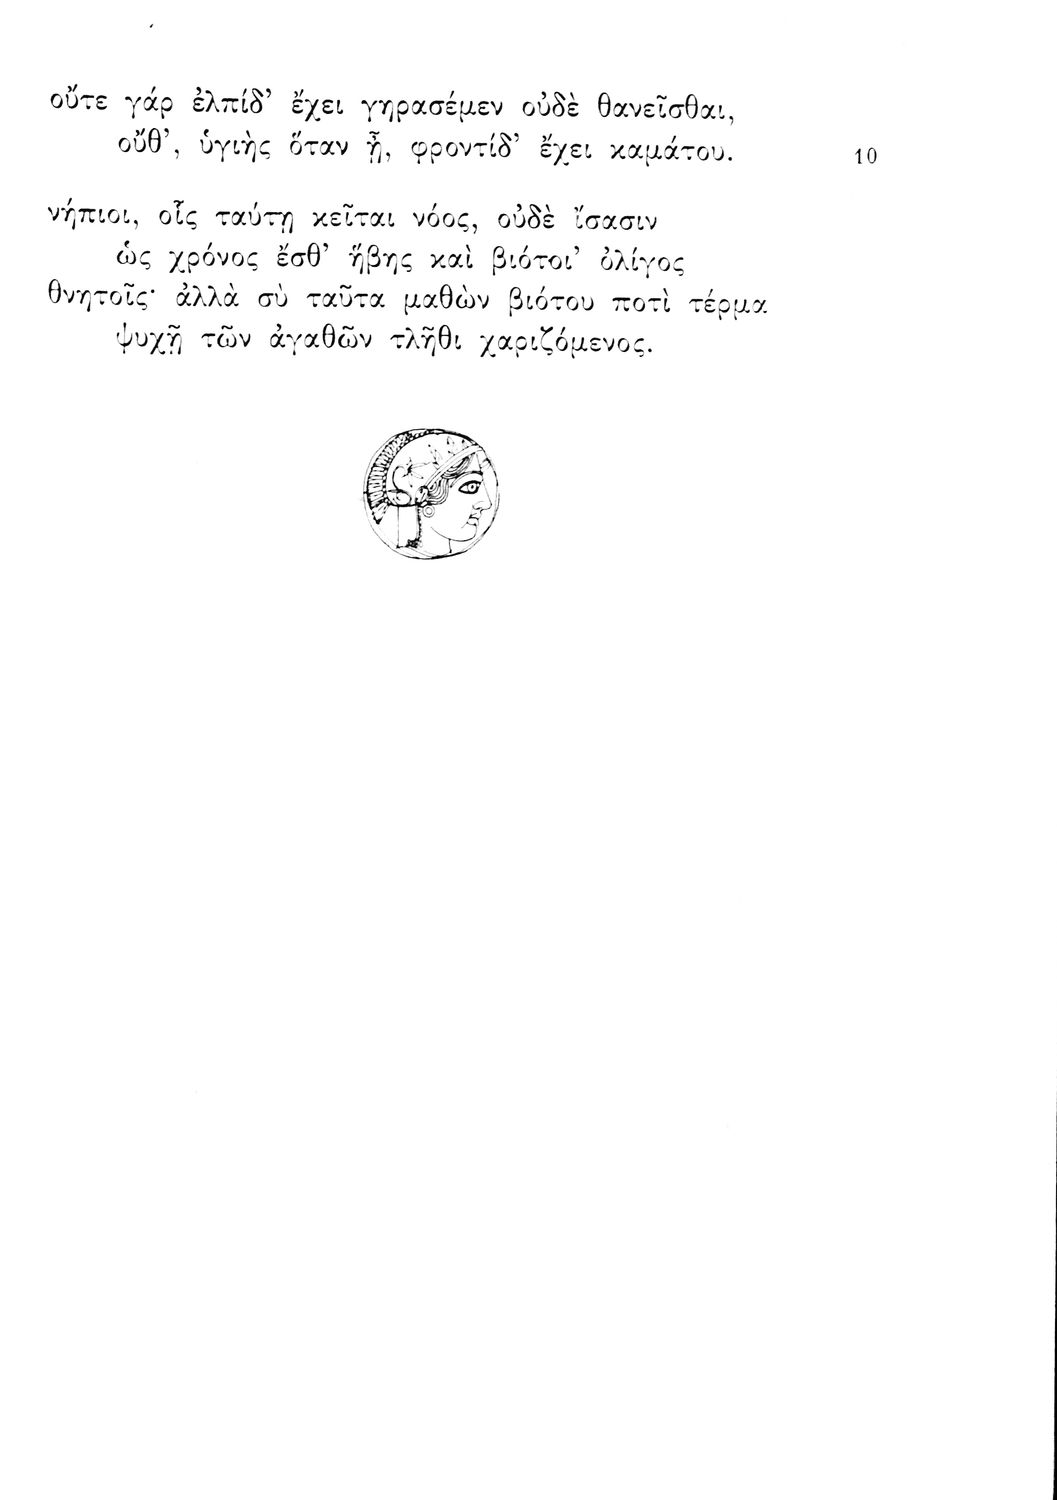 οὔτε γάρ ἐλπίδ’ ἔχει γηρασέμεν οὐδὲ θανεῖσθαι,
οὔθ’, ὑγιὴς ὅταν ᾖ, φροντίδ’ ἔχει καμάτου. 10
νήπιοι, οἷς ταύτῃ κεῖται νόος, οὐδὲ ἴσασιν
ὡς χρόνος ἔσθ’ ἥβης καὶ βιότοι’ ὀλίγος
θνητοῖς· ἀλλὰ σὺ ταῦτα μαθὼν βιότου ποτὶ τέρμα
ψυχῇ τῶν ἀγαθῶν τλῆθι χαριζόμενος.